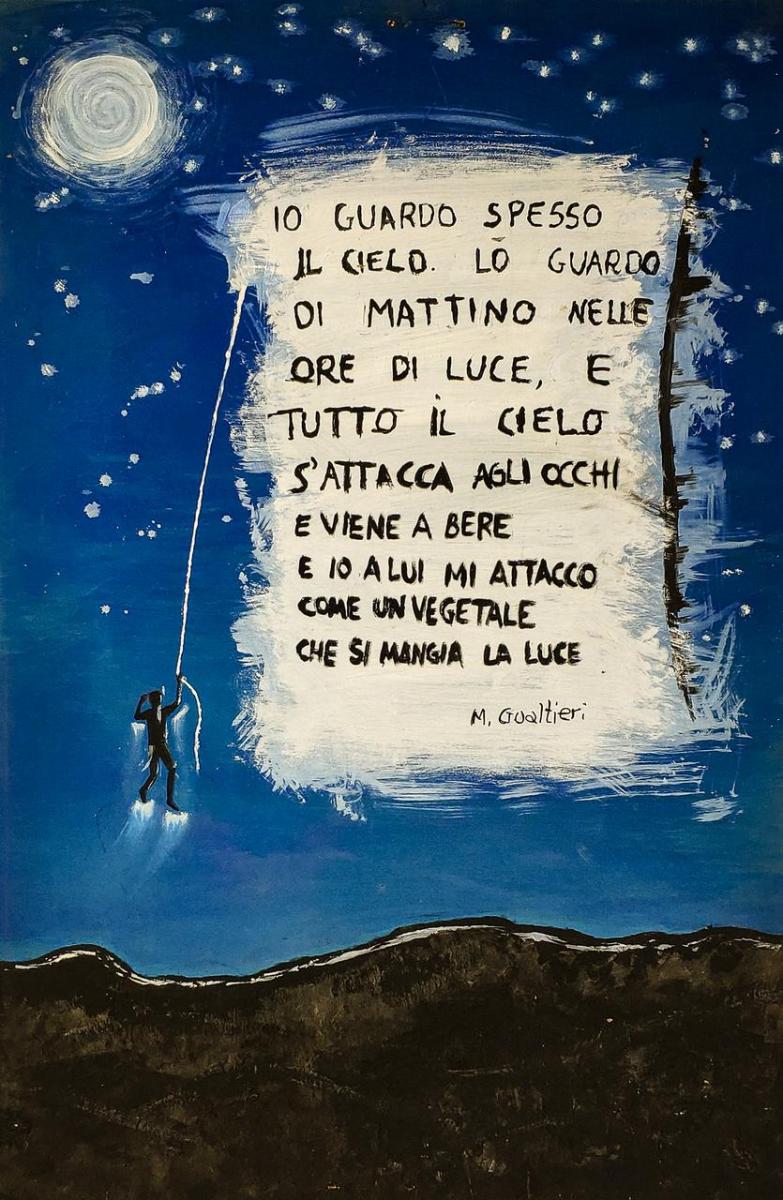 IO GUARDO SPESSO
IL CIELO. LO GUARDO
DI MATTINO NELLE
ORE DI LUCE, E
TUTTO IL CIELO
S'ATTACCA AGLI OCCHI
E VIENE A BERE
E IO A LUI MI ATTACCO
COME UN VEGETALE
CHE SI MANGIA LA LUCE
M. Gualtieri